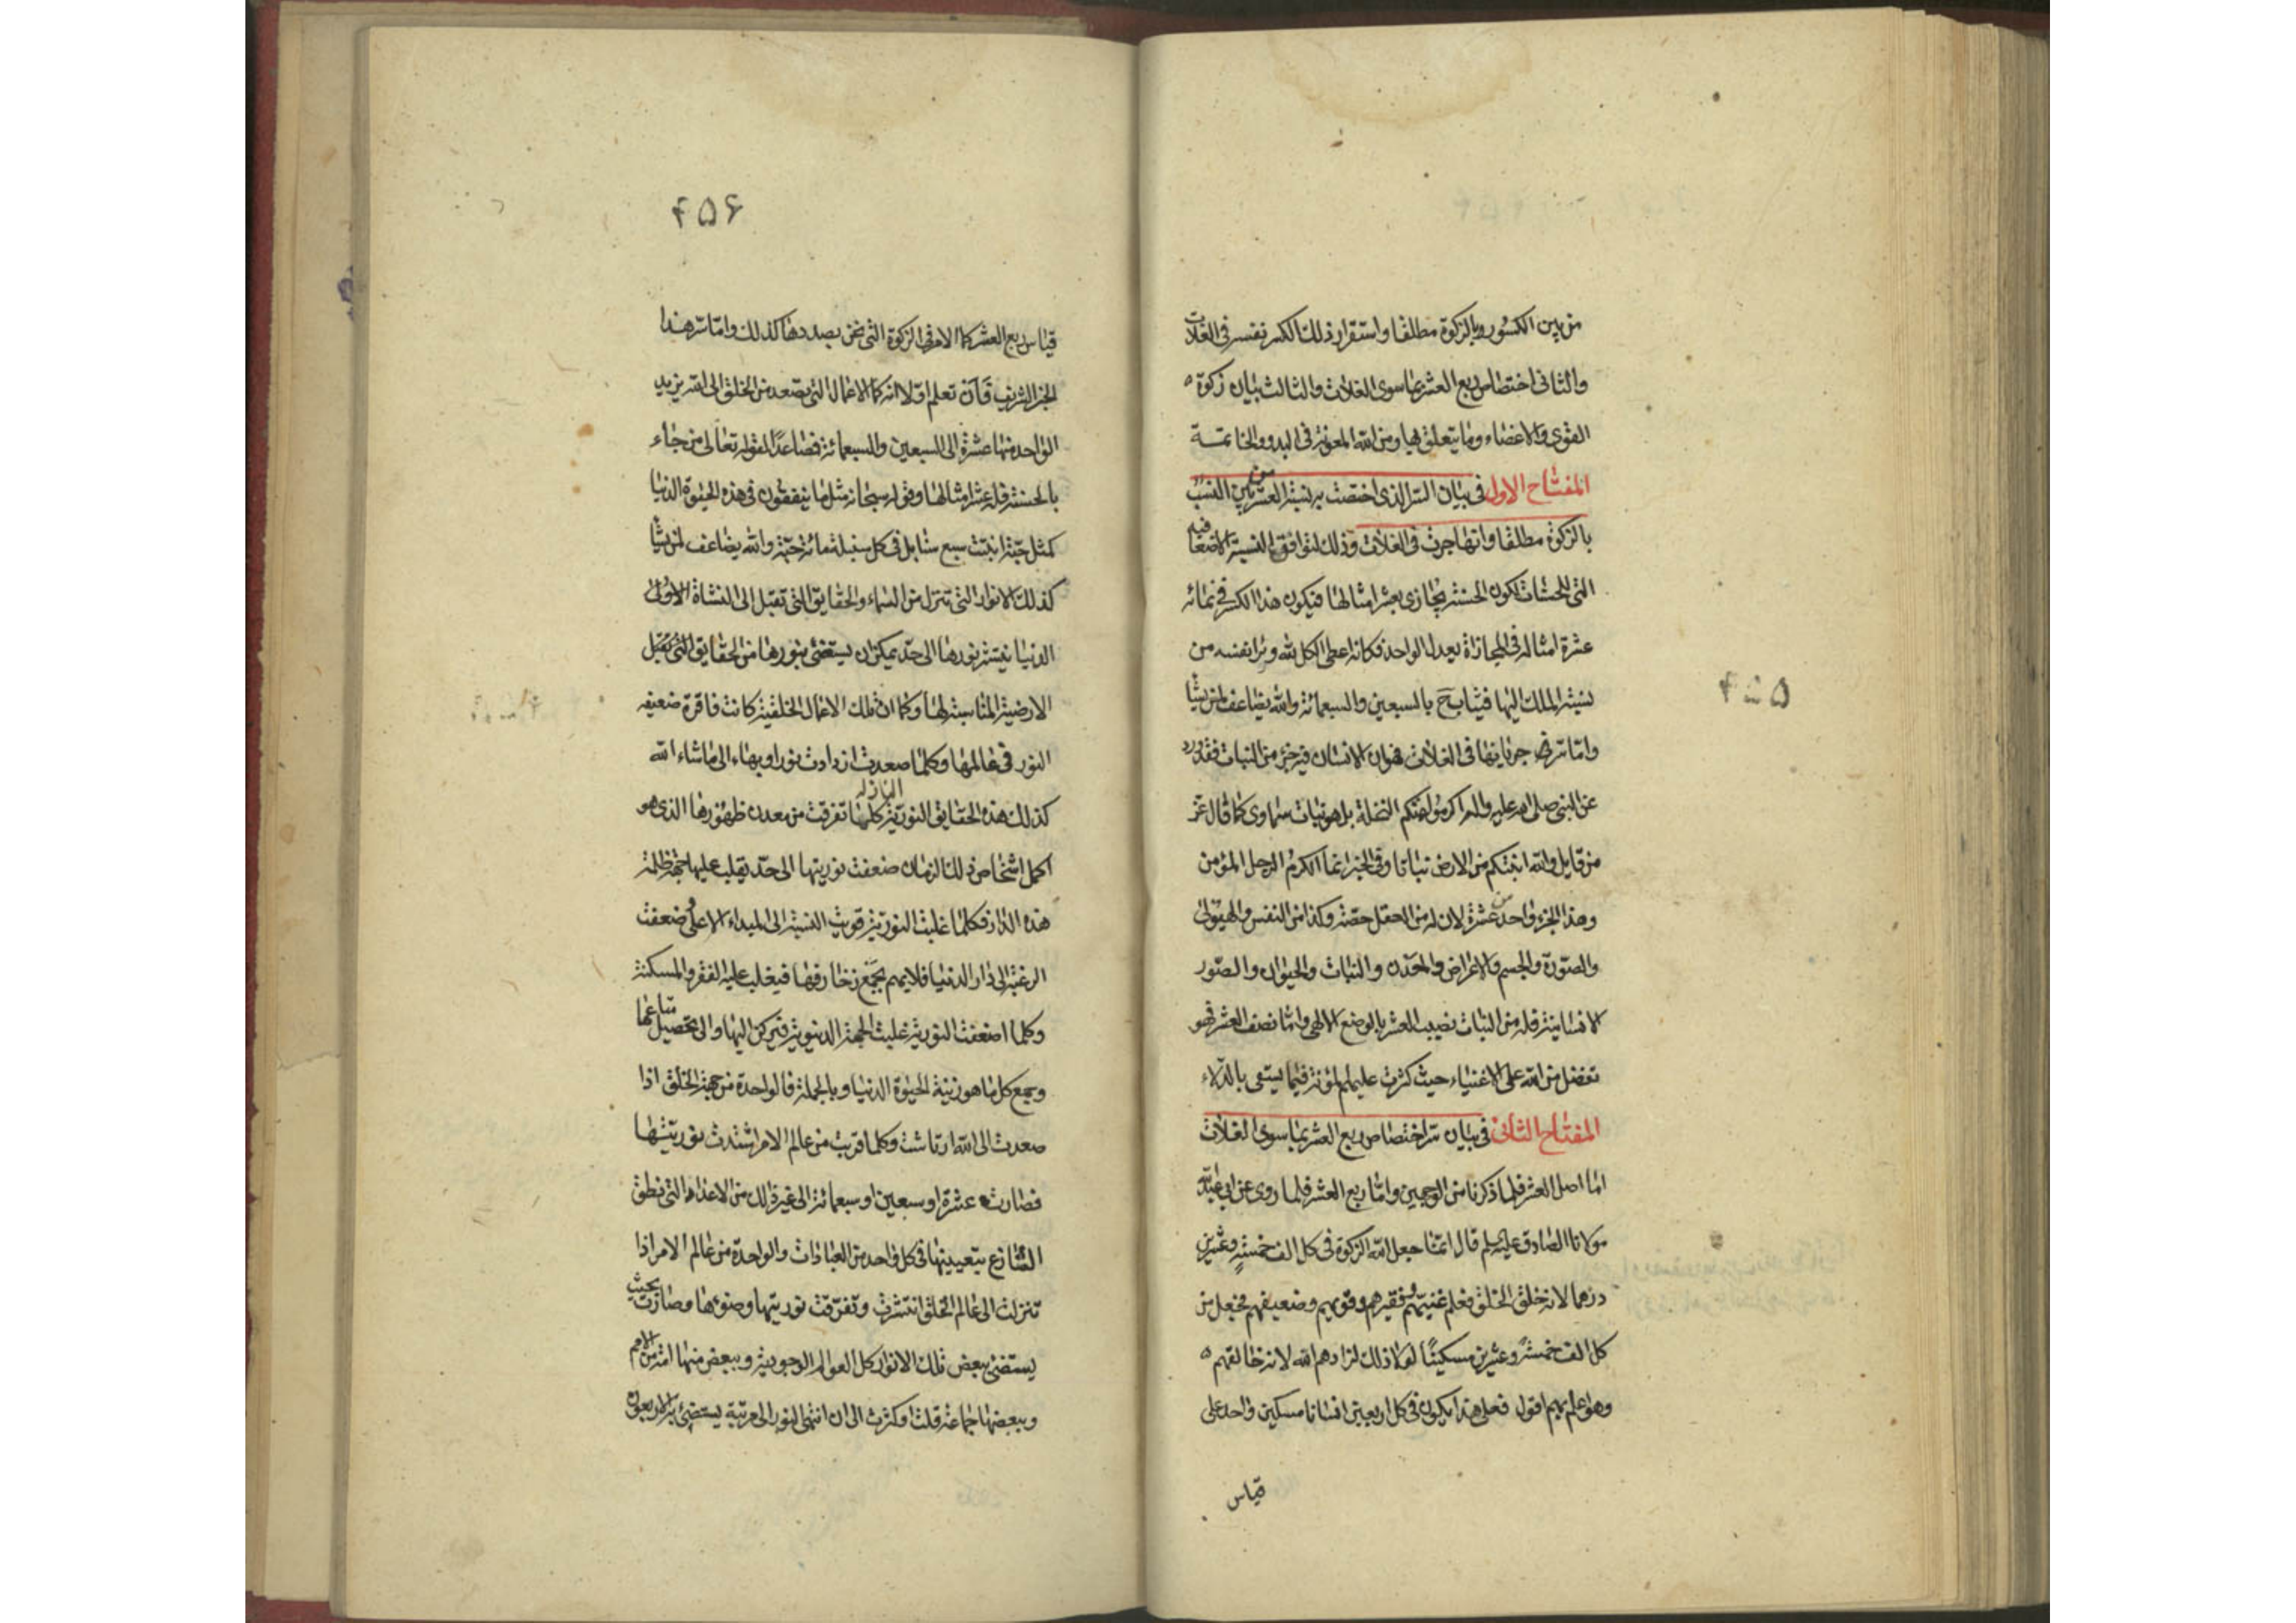 من بين الكسور وبالزكوة مطلقا واستقرار ذلك الكسر نفسر فى الغلات
والثانى اختصاص ربع العشر بما سوى الغلات والثالث بيان زكوة
القوى والاعضاء وما يتعلق بها ومن الله المعونة فى البدو والخاتمة
المفتاح الاول فى بيان السر الذى اختصت به نسبة العشر من بين النسب
بالزكوة مطلقا وانها جرت فى الغلات وذلك لتوافق النسبة الاضعا فيه
التى للحسنات لكون الحسنة يجازى بعشر امثالها فيكون هذا الكسر فى نمائه
عشرة امثاله فى المجازاة يعدل الواحد فكانه اعطى الكل لله وبرا نفسه من
نسبة الملك اليها فيثاب ح بالسبعين والسبعمائة والله يضاعف لمن يشا
واما سر جريانها فى الغلات فهو ان الانسان فيه جزء من النبات فقد ورد
عن النبى صلى الله عليه واله اكرموا عمتكم النخلة بل هو نبات سماوى كما قال عز
من قايل والله انبتكم من الارض نباتا وفى الخبر انما الكرم الرجل المؤمن
وهذا الجزء واحد من عشرة لان له من العقل حصة وكذا من النفس والهيولى
والصورة والجسم والاعراض والمعدن والنبات والحيوان والصور
الانسانية فله من النبات نصيب العشر بالوضع الالهى واما نصف العشر فهو
تفضل من الله على الاغنياء حيث كثرت عليهم المؤنة فيما يسقى بالدلاء
المفتاح الثانى فى بيان سر اختصاص ربع العشر بما سوى الغلات
اما اصل العشر فلما ذكرنا من الوجهين واما ربع العشر فلما روى عن ابى عبد الله
مولانا الصادق عليه السلم قال انما جعل الله الزكوة فى كل الف خمسة وعشرين
درهما لانه خلق الخلق فعلم غنيهم وفقيرهم وقويهم وضعيفهم فجعل من
كل الف خمسة وعشرين مسكينا لولا ذلك لزادهم الله لانه خالقهم
وهو اعلم بهم اقول فعلى هذا يكون فى كل اربعين انسانا مسكين واحد على
قياس
۴۵۵
۴۵۶
قياس ربع العشر كما الامر فى الزكوة التى نحن بصددها كذلك واما سر هذا
الخبر الشريف فان تعلم اولا انه كما الاعمال التى تصعد من الخلق الى الله يزيد
الواحد منها عشرة الى السبعين والسبعمائة فصاعدا لقوله تعالى من جاء
بالحسنة فله عشر امثالها وقوله سبحانه مثل ما ينفقون فى هذه الحيوة الدنيا
كمثل حبة انبتت سبع سنابل فى كل سنبلة مائة حبة والله يضاعف لمن يشا
كذلك الانوار التى تنزل من السماء والحقايق التى تقبل الى النشاة الاولى
الدنيا ينتشر نورها الى حد يمكن ان يستضئ بنورها من الحقايق التى تقبل
الارضية المناسبة لها وكما ان تلك الاعمال الخلقية كانت فاقرة ضعيفه
النور فى عالمها وكلما صعدت ازدادت نورا وبهاء الى ما شاء الله
كذلك هذه الحقايق النورية النازلة كلما تفرقت من معدن ظهورها الذى هو
اكمل اشخاص ذلك الزمان ضعفت نوريتها الى حد يقلب عليها جهة ظلمة
هذه الدار فكلما غلبت النورية قويت النسبة الى المبداء الاعلى وضعفت
الرغبة الى دار الدنيا فلا يهم بجمع زخارفها فيغلب عليه الفقر والمسكنة
وكلما اضعفت النورية غلبت الجهة الدنيوية فيركن اليها والى تحصيل متاعها
وجمع كل ما هو زينة الحيوة الدنيا وبالجملة فالواحدة من جهة الخلق اذا
صعدت الى الله ارتاشت وكلما قربت من عالم الامر اشتدت نوريتها
فصارت عشرة او سبعين او سبعمائة الى غير ذلك من الاعداد التى نطق
الشارع بتعيينها فى كل واحد من العبادات والواحدة من عالم الامر اذا
تنزلت الى عالم الخلق انتشرت وتفرقت نوريتها وضوءها وصارت بحيث
يستضئ ببعض تلك الانوار كل العوالم الوجودية وببعض منها امة من الامم
وببعضها جماعة قلت او كثرت الى ان انتهى النور الى مرتبة يستضئ به الاربعون